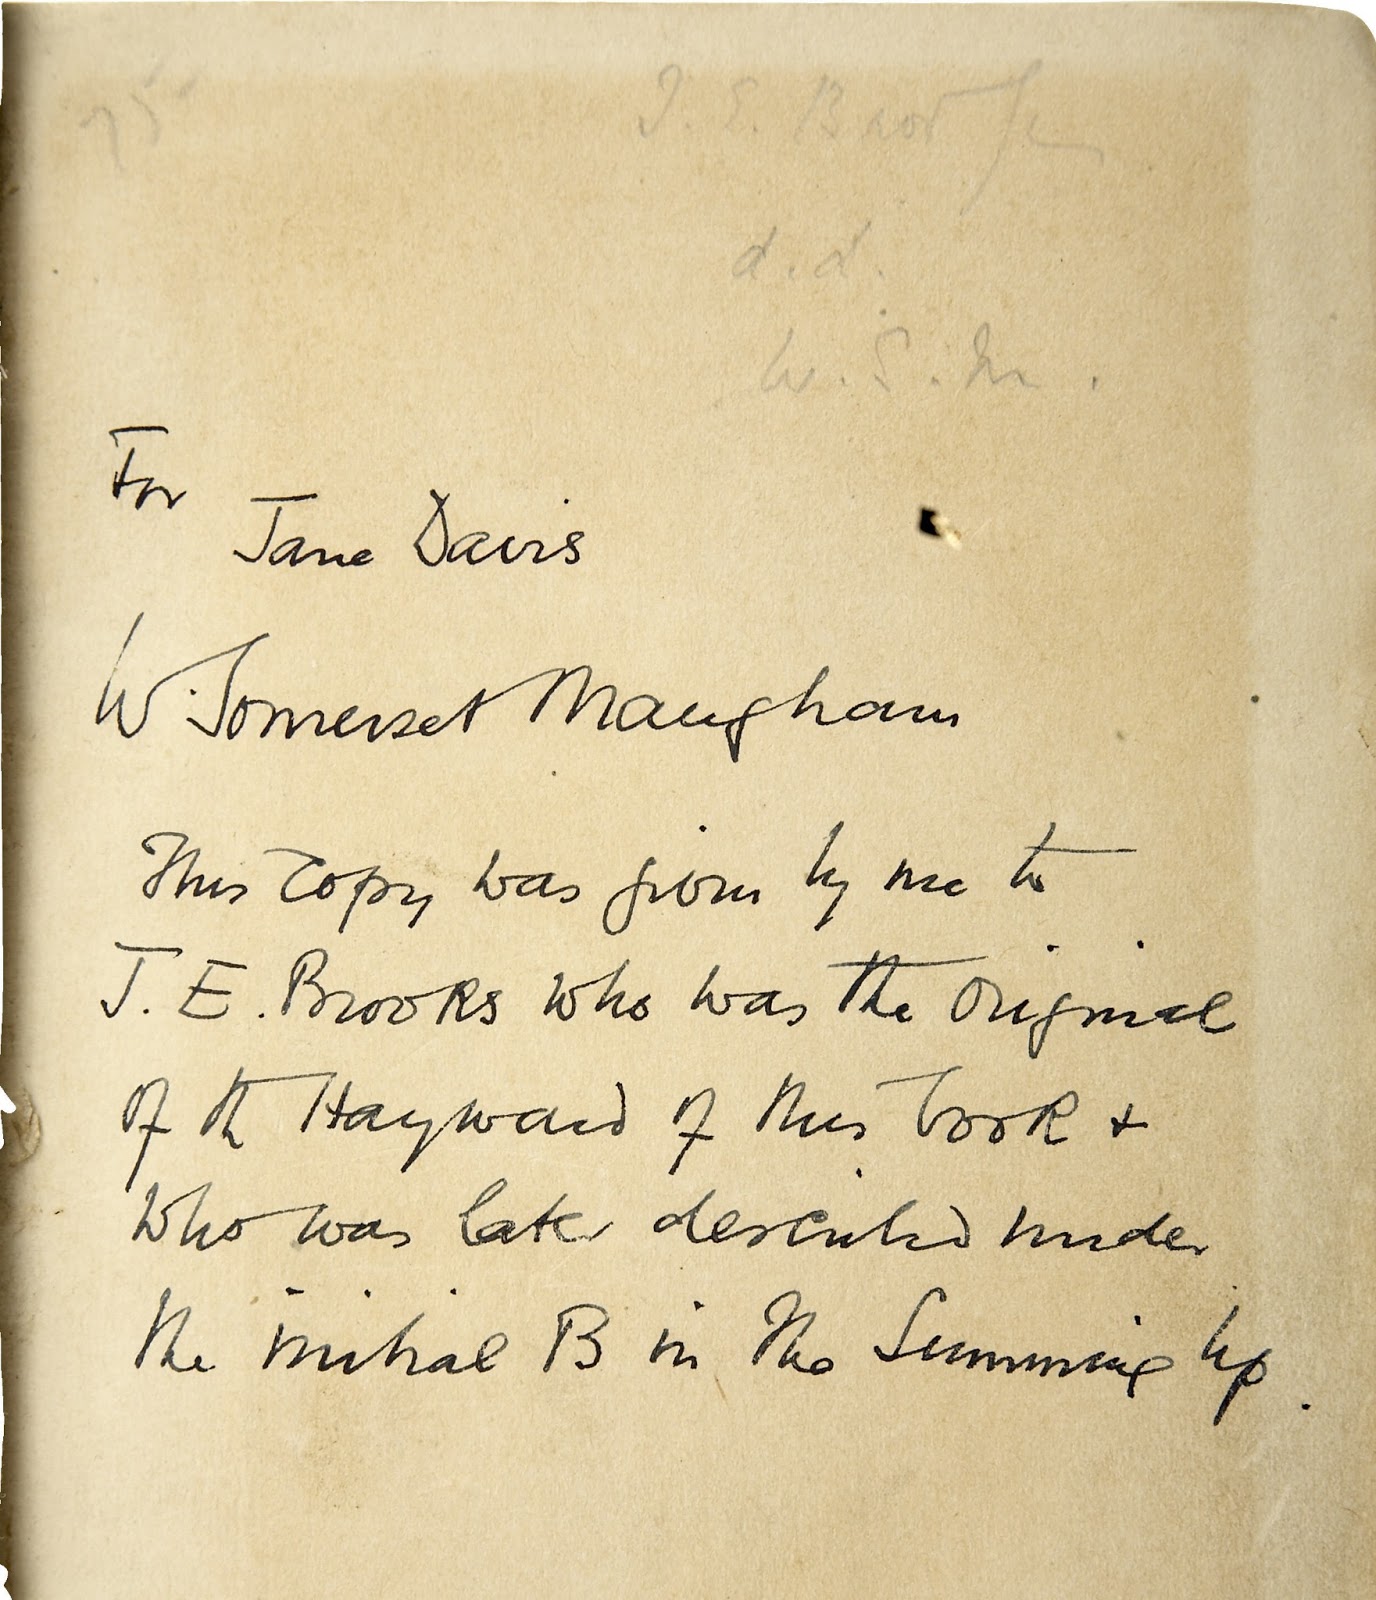 75
J. E. B
d. d.
W. S. M.
For
Jane Davis
W. Somerset Maugham
This copy was given by me to
J. E. Brooks who was the original
of the Hayward of this book +
who was later described under
the initial B in The Summing Up.